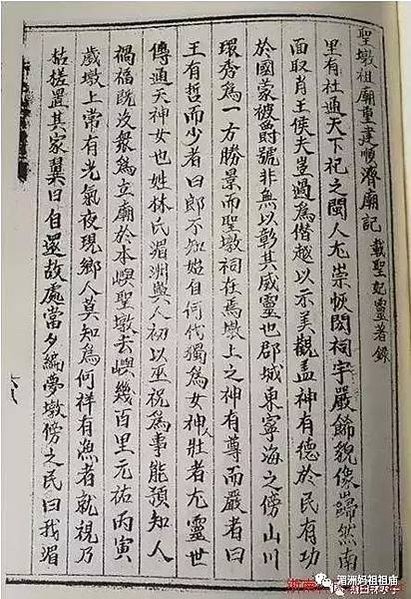 聖墩祖廟重建順濟廟記 載聖妃靈著錄
里有社通天下祀之閩人尤崇恢閎祠宇嚴飾貌像巋然南
面取肖王侯夫豈過為僭越以示美觀盖神有德於民有功
於國蒙被爵號非無以彰其威靈也郡城東寧海之傍山川
環秀為一方勝景而聖墩祠在焉墩上之神有尊而嚴者曰
王有晢而少者曰郎不知始自何代獨為女神壯者尤靈世
傳通天神女也姓林氏湄洲嶼人初以巫祝為事能預知人
禍福既沒眾為立廟於本嶼聖墩去嶼幾百里元祐丙寅
歲墩上常有光氣夜現鄉人莫知為何祥有漁者就視乃
枯槎置其家翼日自還故處當夕編夢墩傍之民曰我湄
湄洲妈祖祖庙